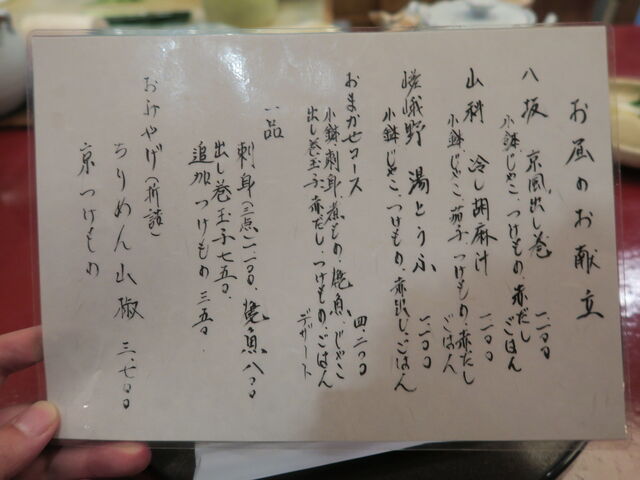 お昼のお献立
八坂 京風出し巻 一一〇〇
小鉢、じゃこ、つけもの、赤だし
ごはん
山科 冷し胡麻汁 一一〇〇
小鉢、じゃこ、茄子、つけもの、赤だし
ごはん
嵯峨野 湯とうふ 一一〇〇
小鉢、じゃこ、つけもの、赤出し、ごはん
おまかせコース 四、二〇〇
小鉢、刺身、煮もの、焼魚、じゃこ
出し巻玉子、赤だし、つけもの、ごはん
デザート
一品
刺身(三点)一一〇〇、焼魚八〇〇
出し巻玉子七五〇、
追加つけもの 三五〇、
おみやげ(折詰)
ちりめん山椒 三、七〇〇
京つけもの